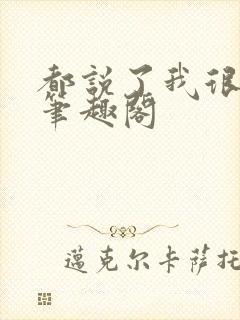 都說了我很
筆趣閣
邁克尔卡萨托